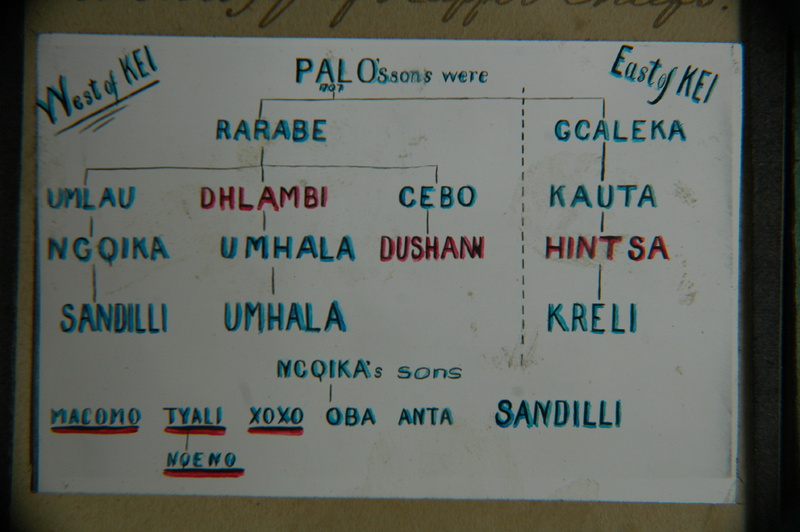 West of KEI
PALO's sons were
East of KEI
1707
RARABE GCALEKA
UMLAU DHLAMBI CEBO KAUTA
NGQIKA UMHALA DUSHANI HINTSA
SANDILLI UMHALA KRELI
NGQIKA's sons
MACOMO TYALI XOXO OBA ANTA SANDILLI
NQENO